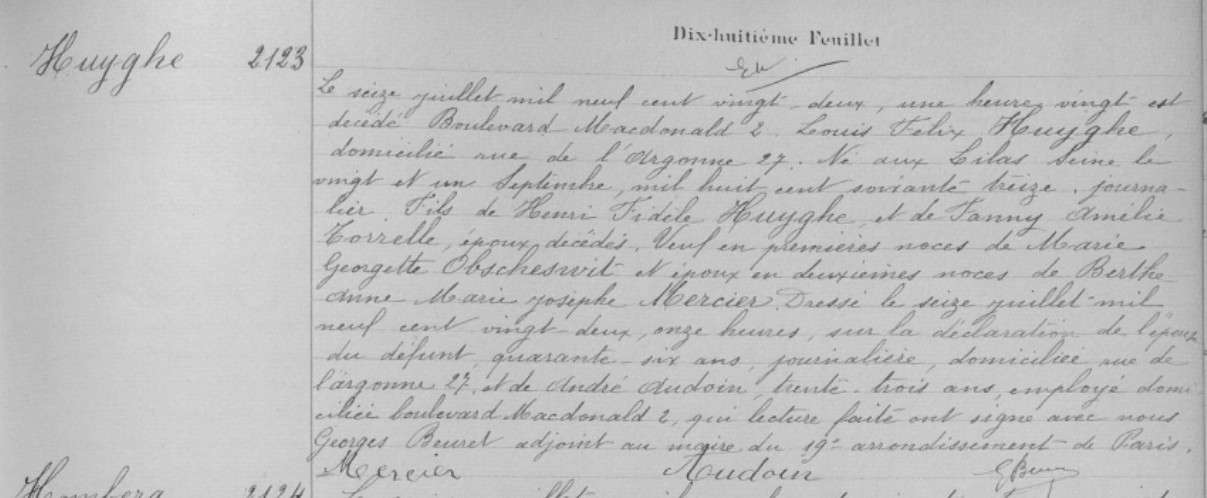 Dix-huitième Feuillet
Huyghe 2123
Le seize juillet mil neuf cent vingt-deux, une heure vingt est
décédé Boulevard Macdonald 2. Louis Felix Huyghe,
domicilié rue de l'Argonne 27. Né aux Lilas Seine le
vingt et un Septembre, mil huit cent soixante treize. journa-
lier. Fils de Henri Fidèle Huyghe, et de Fanny Amélie
Torrelle, époux décédés. Veuf en premières noces de Marie
Georgette Obscheswit et époux en deuxièmes noces de Berthe
Anne Marie josephe Mercier. Dressé le seize juillet mil
neuf cent vingt-deux, onze heures, sur la déclaration de l'épouse
du défunt, quarante-six ans, journalière, domiciliée, rue de
l'argonne 27, et de André Audoin, trente-trois ans, employé domi
cilié boulevard Macdonald 2, qui lecture faite ont signé avec nous
Georges Beuret adjoint au maire du 19e arrondissement de Paris.
Mercier Audoin
2124